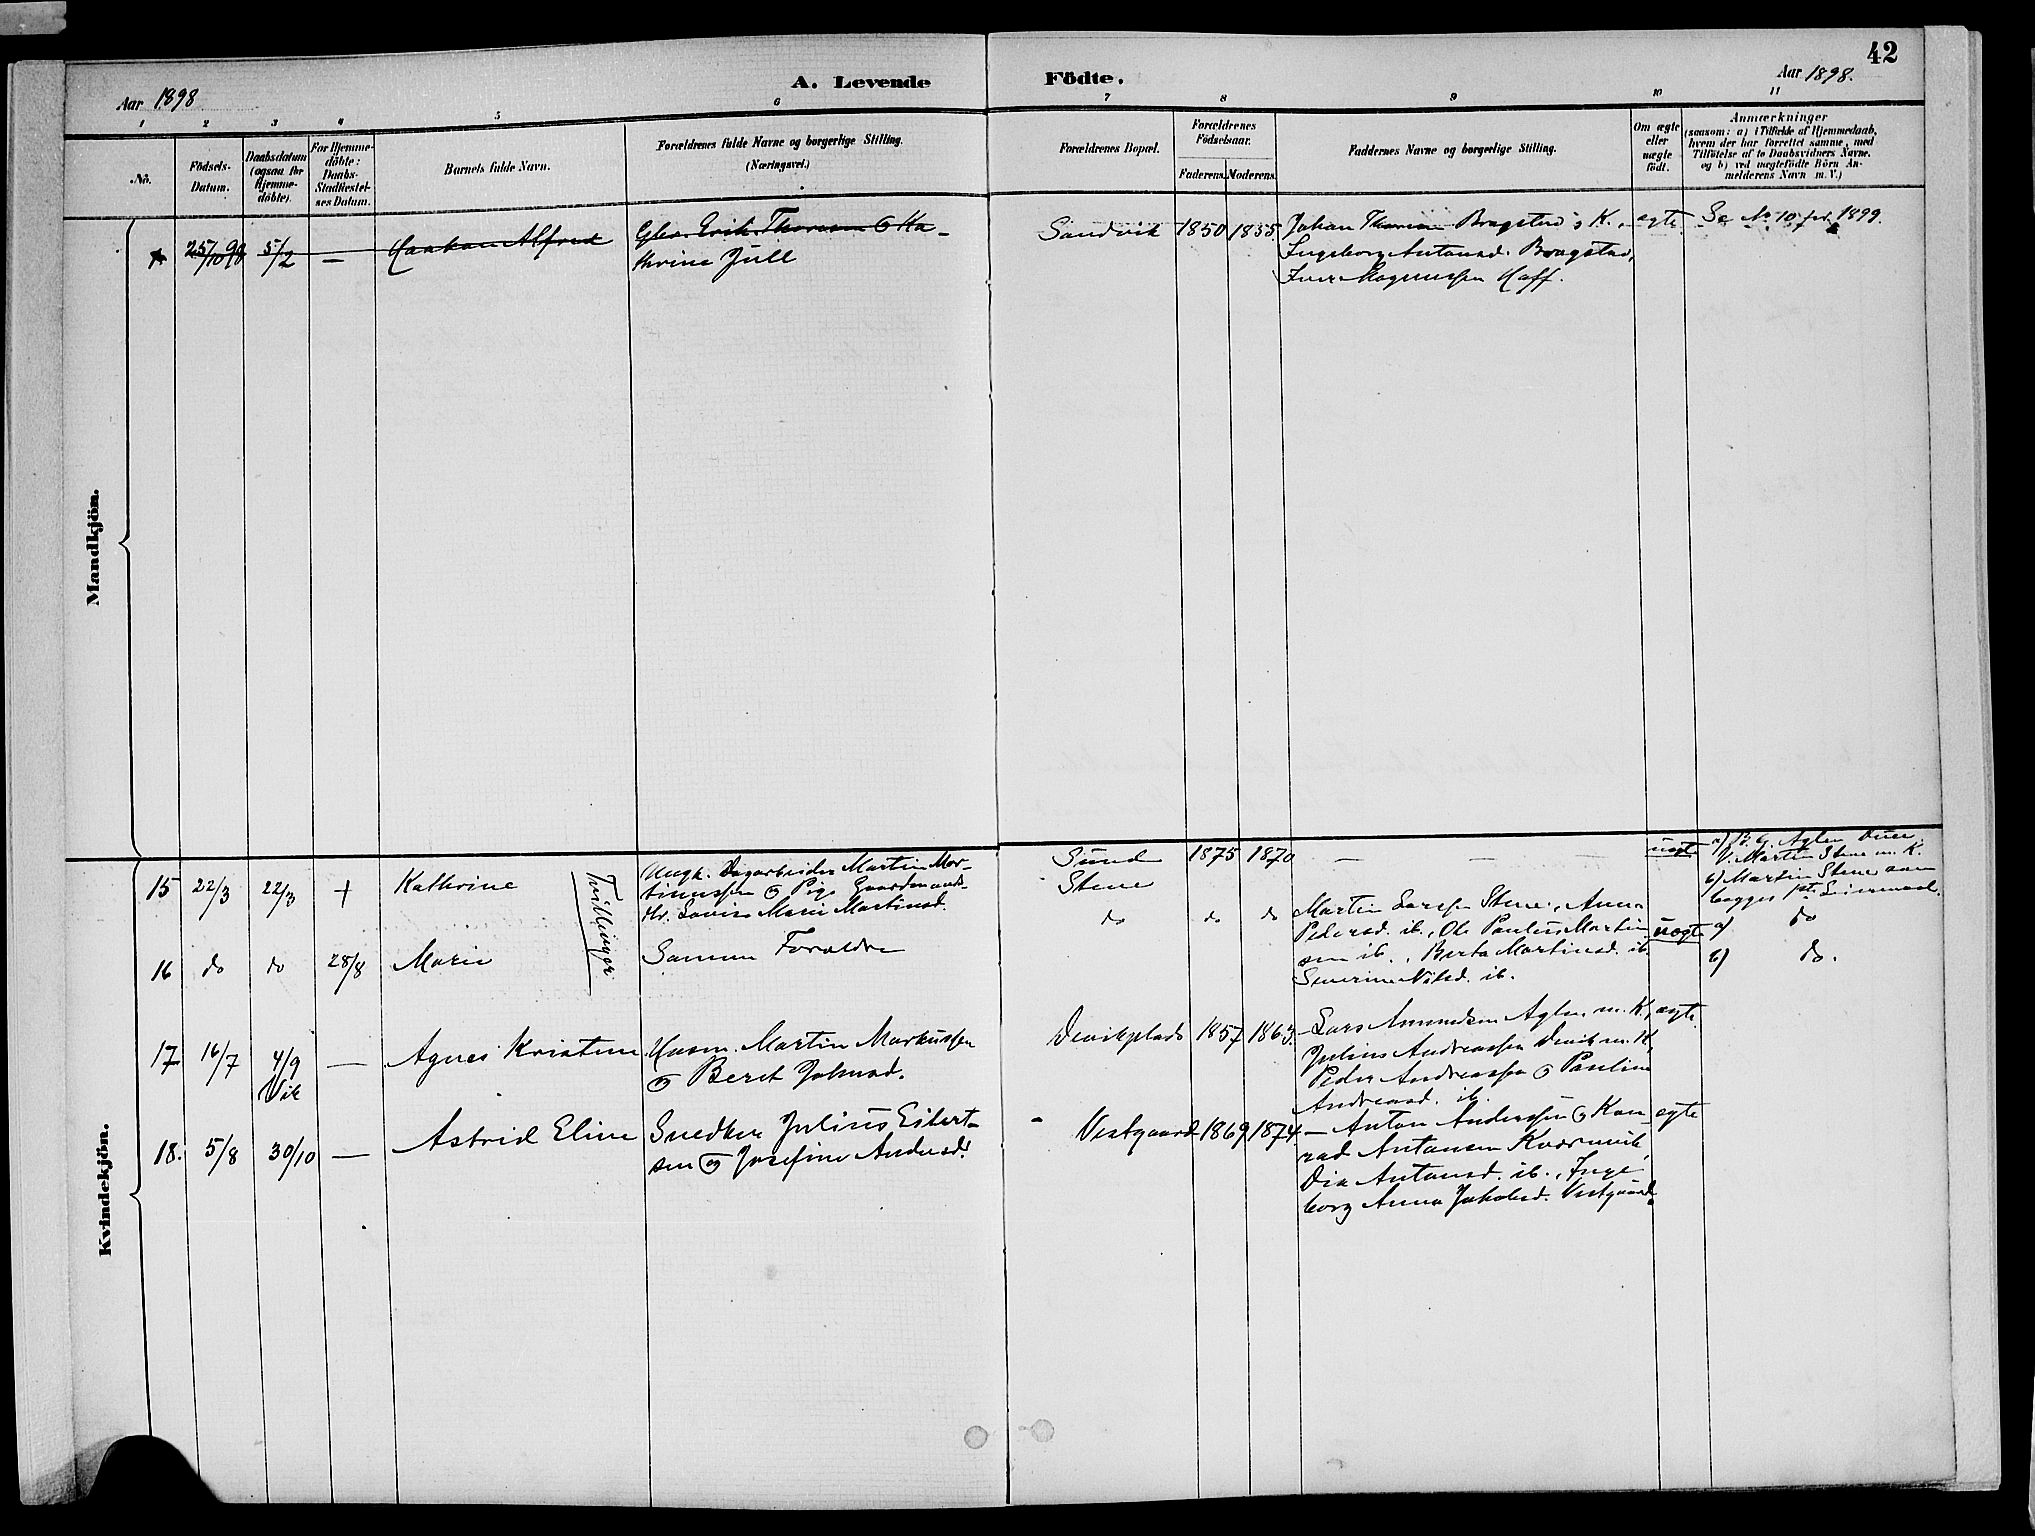 42
Aar 1898
A. Levende Födte.
Aar 1898.
1 2 3 4 5 6 7 8 9 10 11
No.
Födsels-
Datum.
Daabsdatum
(ogsaa for
Hjemme-
döbte).
For Hjemme-
döbte:
Daabs-
Stadfæstel-
ses Datum.
Barnets fulde Navn.
Forældrenes fulde Navne og borgerlige Stilling.
(Næringsvei.)
Forældrenes Bopæl.
Forældrenes
Födselsaar.
Faderens. Moderens.
Faddernes Navne og borgerlige Stilling.
Om ægte
eller
uægte
födt.
Anmærkninger
(saasom: a) i Tilfælde af Hjemmedaab,
hvem der har forrettet samme, med
Tilföielse af to Daabsvidners Navne,
og b) ved uægtefödte Börn An-
melderens Navn m. V.)
Mandkjön.
25/10 98 5/2 — Haakon Alfred
Gbr. Erik Thoresen & Ka-
thrine Jull
Sandvik 1850 1855
Johan Bragstad & K.,
Ingeborg Antonsd. Bragstad,
Iver Magnussen Haff.
ægte
Se No 10 for 1899.
Kvindekjön.
15 22/3 22/3 + Kathrine
Tvillinger
Ungk. Dagarbeider Martin Mor-
tinussen & Pige Gaardmands-
dtr. Lovise Marie Martinsd.
Sund
Stene
1875 1870 — — —
uægte
Martin Stene m. K.
b) Martin Stene
begges Leiermaal.
16 do do 28/8 Marie
Samme Forældre
do do do
Martin Larssen Stene, Anna
Pedersd. ib., Ole Paulus Martin
sen ib., Berta Martinsd. ib.
Severine Nilsd. ib.
uægte
a) do
b) do.
17 16/7 4/9 — Agnes Kristine
Vik
Husm. Martin Markussen
& Beret Johnsd.
Devikplads 1857 1863.
— Lars Amundsen Aglen m. K.,
Julius Andreassen Devik m. K,
Peder Andreassen & Pauline
Andreasd. ib.
ægte
18. 5/8 30/10 — Astrid Eline
Snedker Julius Eilert-
sen & Josefine Andersd.
Vestgaard 1869 1874.
— Anton Anderssen & Kon-
rad Antonsen
Antonsd. ib., Inge
borg Anna Jakobsd. Vestgaard.
ægte